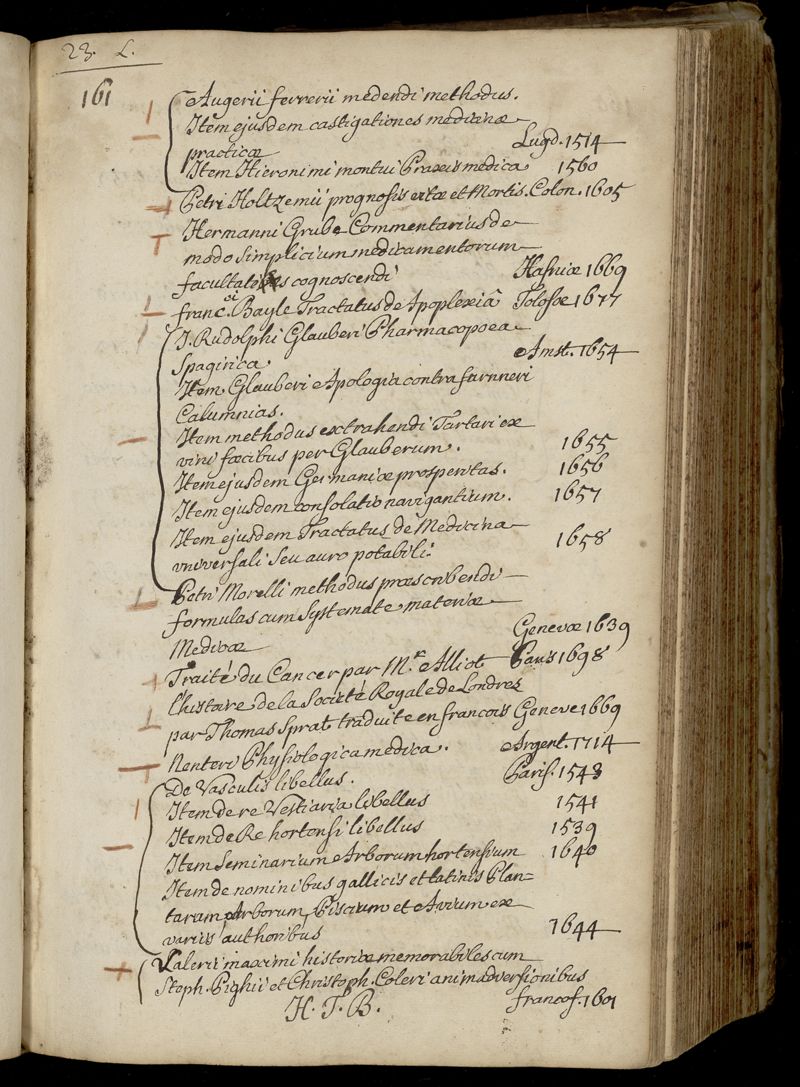 23. L.
161
Augerii ferrerii medendi methodus.
Item ejusdem castigationes medicinæ
practicæ Lugd. 1574
Item Hieronimi montui Praxis medica 1560
Petri Holtzemii prognosis vitæ et Mortis. Colon. 1605
Hermanni Grube Commentarius de
modo simplicium medicamentorum
facultates cognoscendi Hafniæ 1669
franc.ci Bayle Tractatus de Apoplexiâ Tolosæ 1677
J. Rudolphi Glauberi Pharmacopoea
spagirica. Amst. 1654
Item Glauberi Apologia contra farnneri
Calumnias.
Item methodus extrahendi Tartari ex
vini fœcibus per Glauberum. 1655
Item ejusdem Germaniæ prosperitas. 1656
Item ejusdem consolatio navigantium. 1657
Item ejusdem Tractatus de Medicina
universali seu auro potabili. 1658
Petri Morelli methodus præscribendi
formulas cum Systemate materiæ
Medicæ Genevæ 1639
Traité du Cancer par Mr. Alliot Paris 1698
l'histoire de la Societé Royale de Londres
par Thomas Sprat traduite en francois Geneve 1669
Nenteri Physiologica medica. Argent. 1714
De Vasculis libellus. Paris. 1543
Item de re Vestiaria libellus 1541
Item de Re hortensi libellus 1539
Item Seminarium Arborum hortensium 1640
Item de nominibus gallicis et latinis Plan=
tarum, Arborum, Piscium et Avium ex
variis authoribus 1644
Valerii maximi historiæ memorabiles cum
Steph. Pighii et Christoph. Coleri animadversionibus
H. T. B. francof. 1601